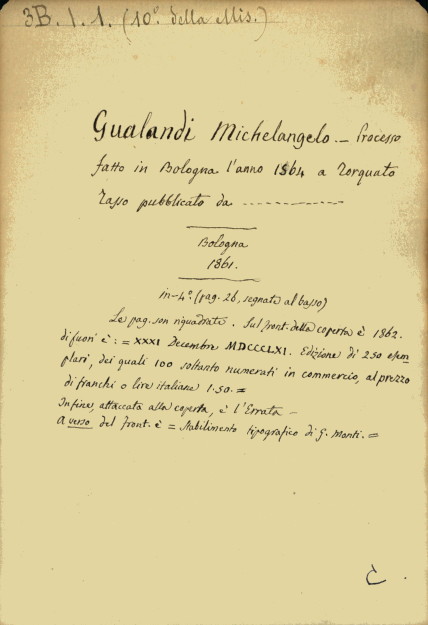 3B. I. 1. (10º. della Mis.)
Gualandi Michelangelo. – Processo
fatto in Bologna l'anno 1564 a Torquato
Tasso pubblicato da ------------
Bologna
1861.
in-4º. (pag. 26, segnate al basso)
Le pag. son riquadrate. Sul front. della coperta è 1862.
di fuori è: = XXXI Decembre MDCCCLXI. Edizione di 250 esem
plari, dei quali 100 soltanto numerati in commercio, al prezzo
di franchi o lire italiane 1.50. =
Infine, attaccata alla coperta, è l'Errata –
A verso del front. è = Stabilimento tipografico di G. Monti. =